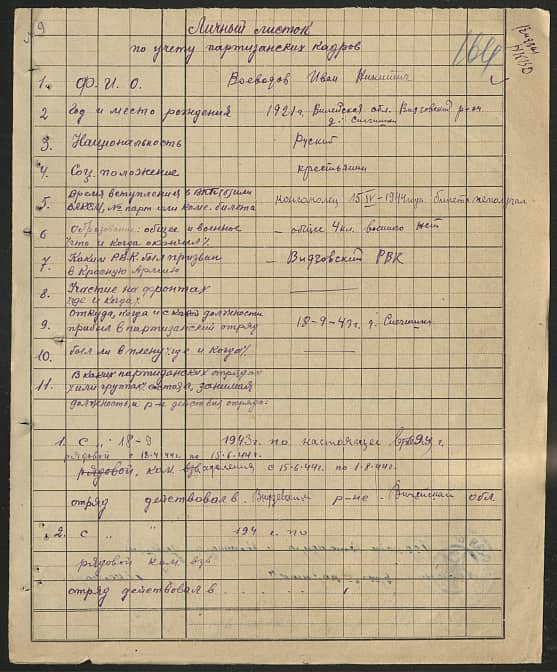 9
Личный листок
по учету партизанских кадров
164
НКВД
1. Ф. И. О. Воеводов Иван Никитич
2 Год и место рождения 1921 г. Вилейская обл. Видзовский р-он
д.
3. Национальность Руский
4. Соц. положение крестьянин
5. Время вступления в ВКП(б) или ВЛКСМ, № парт или комс. билета комсомолец 15 IV – 1944 года. билета не получал
6 Образование: общее и военное что и когда окончил? – общее 4 кл. военно нет
7. Каким РВК был призван в Красную Армию – Видзовский РВК
8. Участие на фронтах где и когда?
9. Откуда, когда и с какой должности прибыл в партизанский отряд 18-9-43 г. д.
10. был ли в плену где и когда?
11. В каких партизанских отрядах или группах состоял, занимал
должность и р-н действия отряда:
1. С „ 18-9 1943 г. по настоящее время г.
рядовой с 18-9-44 г. по 15-6-44 г.
рядовой, ком. отделения с 15-6-44 г. по 1-8-44 г.
отряд действовал в Видзовском р-не. Вилейской обл.
2. с „ „ 194 г. по
рядовой ком. взв
отряд действовал в . . . . . . .